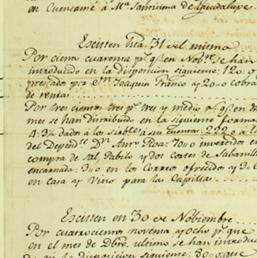 en Cuencamé á Mª Saminima de Guadalupe.
Escisten hta. 31 del mismo
Por ciento cuarenta ps. qe. en Nobre. se han
introducido en la disposicion siguiente: 120. o
prestado por Joaquin Franco y 20. o cobra
de rentas
Por tres cientos tres ps. tres y medio rs. qe. en
mes se han distribuido en la siguiente forma
4. 3½ dados á los su cuenta: 222. o á
del Depend.te Dn. Ant. Rosa: 70. o invertidos en
compra de Pabilo y dos Cortes de Sabanilla
encarnada: 3. o en los Correos ofrecidos y 3.
en casa y Vino para las Capillas.
Escisten en 30 de Noviembre
Por cuatrocientos noventa y ocho ps. que
en el mes de Dbre. ultimo se han introdu
en la disposicion siguiente: 30. o que